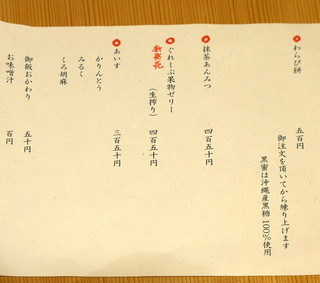 わらび餅 五百円
御注文を頂いてから練り上げます
黒蜜は沖縄産黒糖100%使用
抹茶あんみつ 四百五十円
ぐれーぷ果物ゼリー（生搾り） 四百五十円
新発売
あいす 三百五十円
かりんとう
みるく
くろ胡麻
御飯おかわり 五十円
お味噌汁 百円